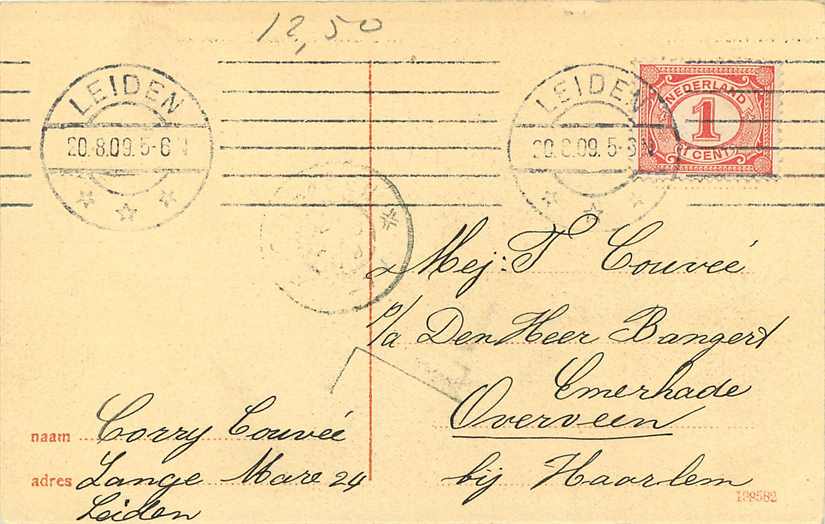 12,50
LEIDEN
20.8.09. 5-6 N
LEIDEN
20.8.09. 5-6 N
NEDERLAND
1
1 CENT
Mej: T Couvée
p/a Den Heer Bangert
Emerhade
Overveen
bij Haarlem
naam Corry Couvée
adres Lange Mare 24
Leiden
198582